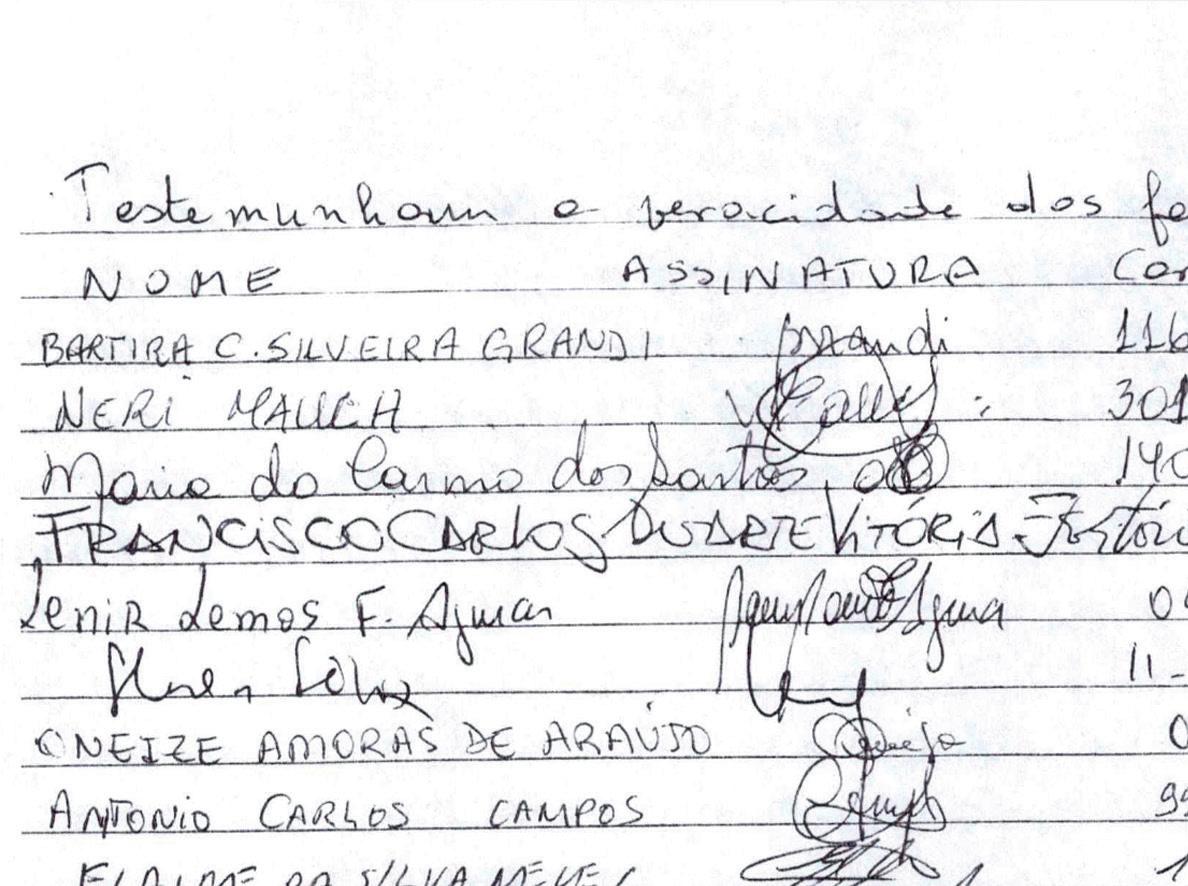 Testemunham a veracidade dos fa
NOME ASSINATURA Con
BARTIRA C. SILVEIRA GRANDI Grandi 116
NERI MAUCH 301
Maria do Carmo dos Santos 140
FRANCISCO CARLOS DUARTE VITÓRIA
Lenir Lemos F. Aguiar 0
11-
ONEIZE AMORAS DE ARAÚJO 0
ANTONIO CARLOS CAMPOS 99
DA SILVA